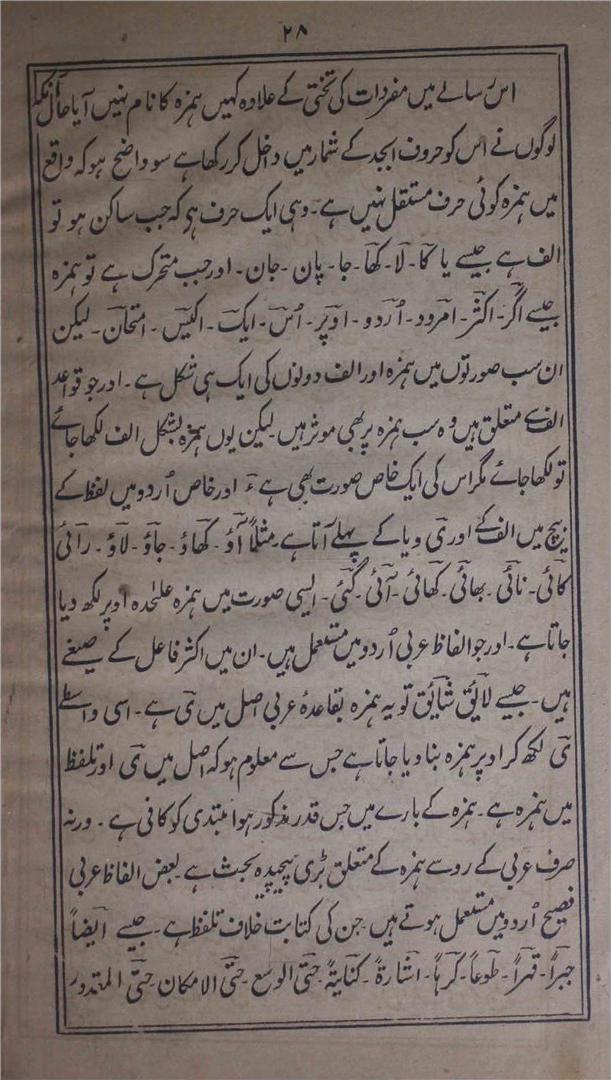 ۲۸
اس رسالے میں مفردات کی تختی کے علاوہ کہیں ہمزہ کا نام نہیں آیا حال آنکہ
لوگوں نے اس کو حروف ابجد کے شمار میں داخل کر رکھا ہے سو واضح ہو کہ واقع
میں ہمزہ کوئی حرف مستقل نہیں ہے۔ وہی ایک حرف ہر کہ جب ساکن ہو تو
الف ہے جیسے یا کا۔ لا۔ کھا۔ جا۔ پان۔ جان۔ اور جب متحرک ہے تو ہمزہ
جیسے اگر۔ اکثر۔ امرود۔ اُردو۔ اوپر۔ اُس۔ ایک۔ اکیس۔ امتحان۔ لیکن
ان سب صورتوں میں ہمزہ اور الف دونوں کی ایک ہی شکل ہے۔ اور جو قواعد
الف سے متعلق ہیں وہ سب ہمزہ پر بھی موثر ہیں لیکن یوں ہمزہ بشکل الف لکھا جائے
تو لکھا جائے مگر اس کی ایک خاص صورت بھی ہے ء اور خاص اُردو میں لفظ کے
بیچ میں الف کے اور ی و یا کے پہلے آتا ہے مثلاً آؤ۔ کھاؤ۔ جاؤ۔ لاؤ۔ رائی
کائی۔ نائی۔ بھائی۔ کھائی۔ آئی۔ گئی۔ ایسی صورت میں ہمزہ علٰحدہ اوپر لکھ دیا
جاتا ہے۔ اور جو الفاظ عربی اُردو میں مستعمل ہیں۔ ان میں اکثر فاعل کے صیغے
ہیں۔ جیسے لائق شائق تو یہ ہمزہ بقاعدۂ عربی اصل میں ی ہے۔ اسی واسطے
ی لکھ کر اوپر ہمزہ بنا دیا جاتا ہے جس سے معلوم ہو کہ اصل میں ی اور تلفظ
میں ہمزہ ہے۔ ہمزہ کے بارے میں جس قدر مذکور ہوا مبتدی کو کافی ہے۔ ورنہ
صرف عربی کے روسے ہمزہ کے متعلق بڑی پیچیدہ بحث ہے بعض الفاظ عربی
فصیح اُردو میں مستعمل ہوتے ہیں جن کی کتابت خلاف تلفظ ہے۔ جیسے ایضاً
جبراً۔ قہراً۔ طوعاً۔ کرہاً۔ اشارۃً۔ کنایۃً۔ حتی الوسع حتی الامکان حتی المقدور